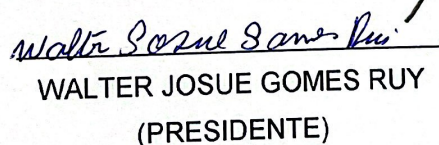 Walter Josue Gomes Rui
WALTER JOSUE GOMES RUY
(PRESIDENTE)